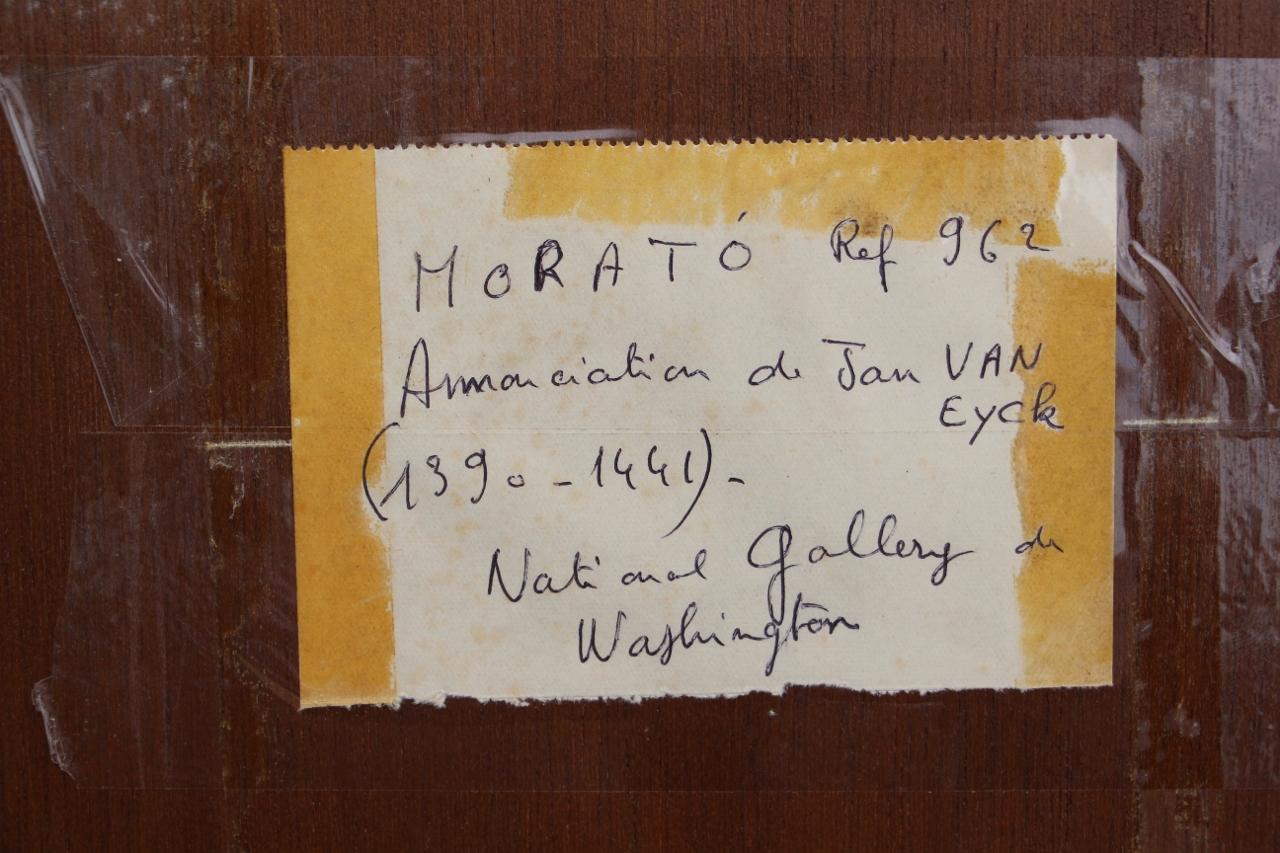 MORATÓ Ref 962
Annonciation de Jan VAN
Eyck
(1390-1441).-
National Gallery de
Washington